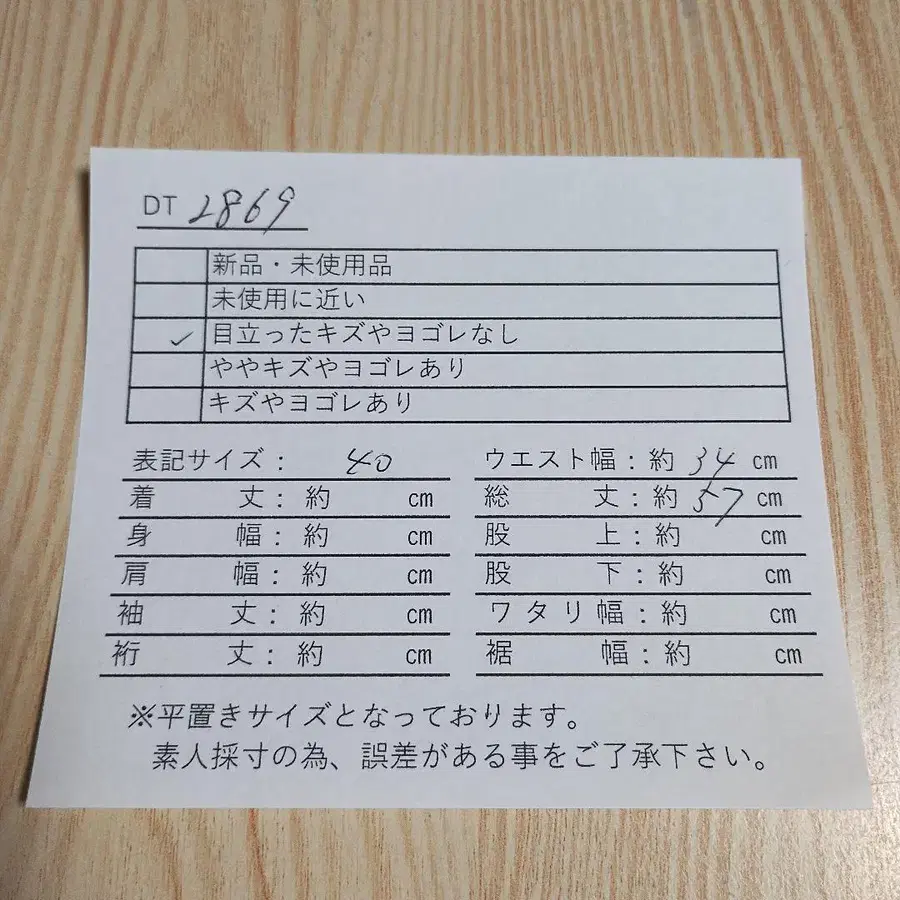 DT 2869
新品・未使用品
未使用に近い
✓ 目立ったキズやヨゴレなし
ややキズやヨゴレあり
キズやヨゴレあり
表記サイズ： 40
着丈：約 cm
身幅：約 cm
肩幅：約 cm
袖丈：約 cm
裄丈：約 cm
ウエスト幅：約 34 cm
総丈：約 57 cm
股上：約 cm
股下：約 cm
ワタリ幅：約 cm
裾幅：約 cm
※平置きサイズとなっております。
素人採寸の為、誤差がある事をご了承下さい。